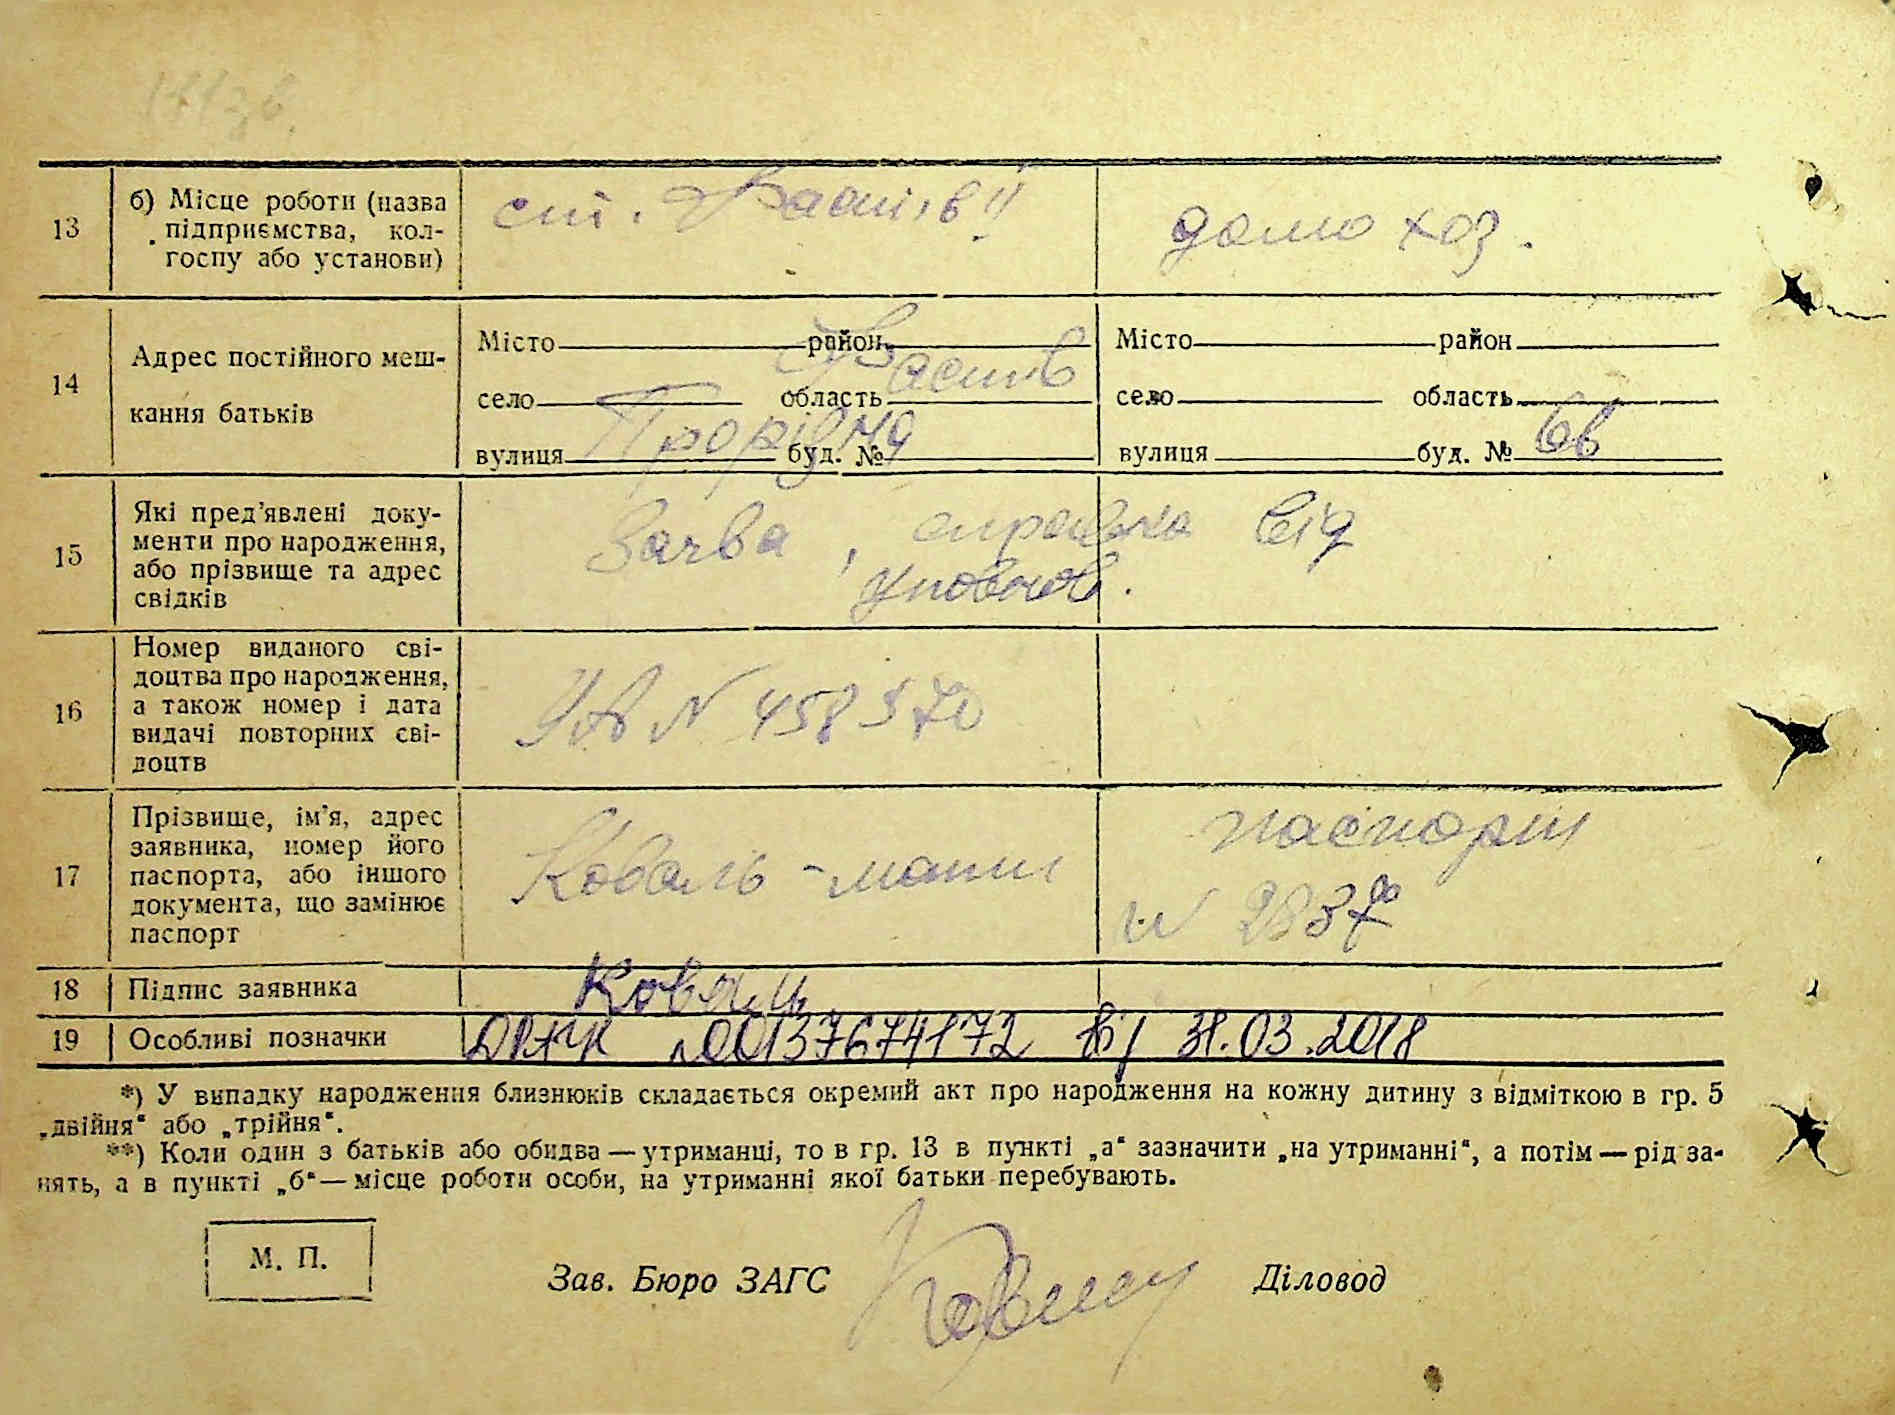 13
б) Місце роботи (назва
підприємства, кол-
госпу або установи)
ст. Фастів II
домо хоз.
14
Адрес постійного меш-
кання батьків
Місто район Фастів
село область
вулиця Прорізна буд. №
Місто район
село область
вулиця буд. № 6в
15
Які пред’явлені доку-
менти про народження,
або прізвище та адрес
свідків
Заява, справка від
16
Номер виданого сві-
доцтва про народження,
а також номер і дата
видачі повторних сві-
доцтв
N 458570
17
Прізвище, ім’я, адрес
заявника, номер його
паспорта, або іншого
документа, що замінює
паспорт
Коваль - мати
паспорт
N
18
Підпис заявника
Коваль
19
Особливі позначки
ДРАЦС №00137674172 від 31.03.2018
*) У випадку народження близнюків складається окремий акт про народження на кожну дитину з відміткою в гр. 5
„двійня“ або „трійня“.
**) Коли один з батьків або обидва — утриманці, то в гр. 13 в пункті „а“ зазначити „на утриманні“, а потім — рід за-
нять, а в пункті „б“ — місце роботи особи, на утриманні якої батьки перебувають.
М. П.
Зав. Бюро ЗАГС
Діловод